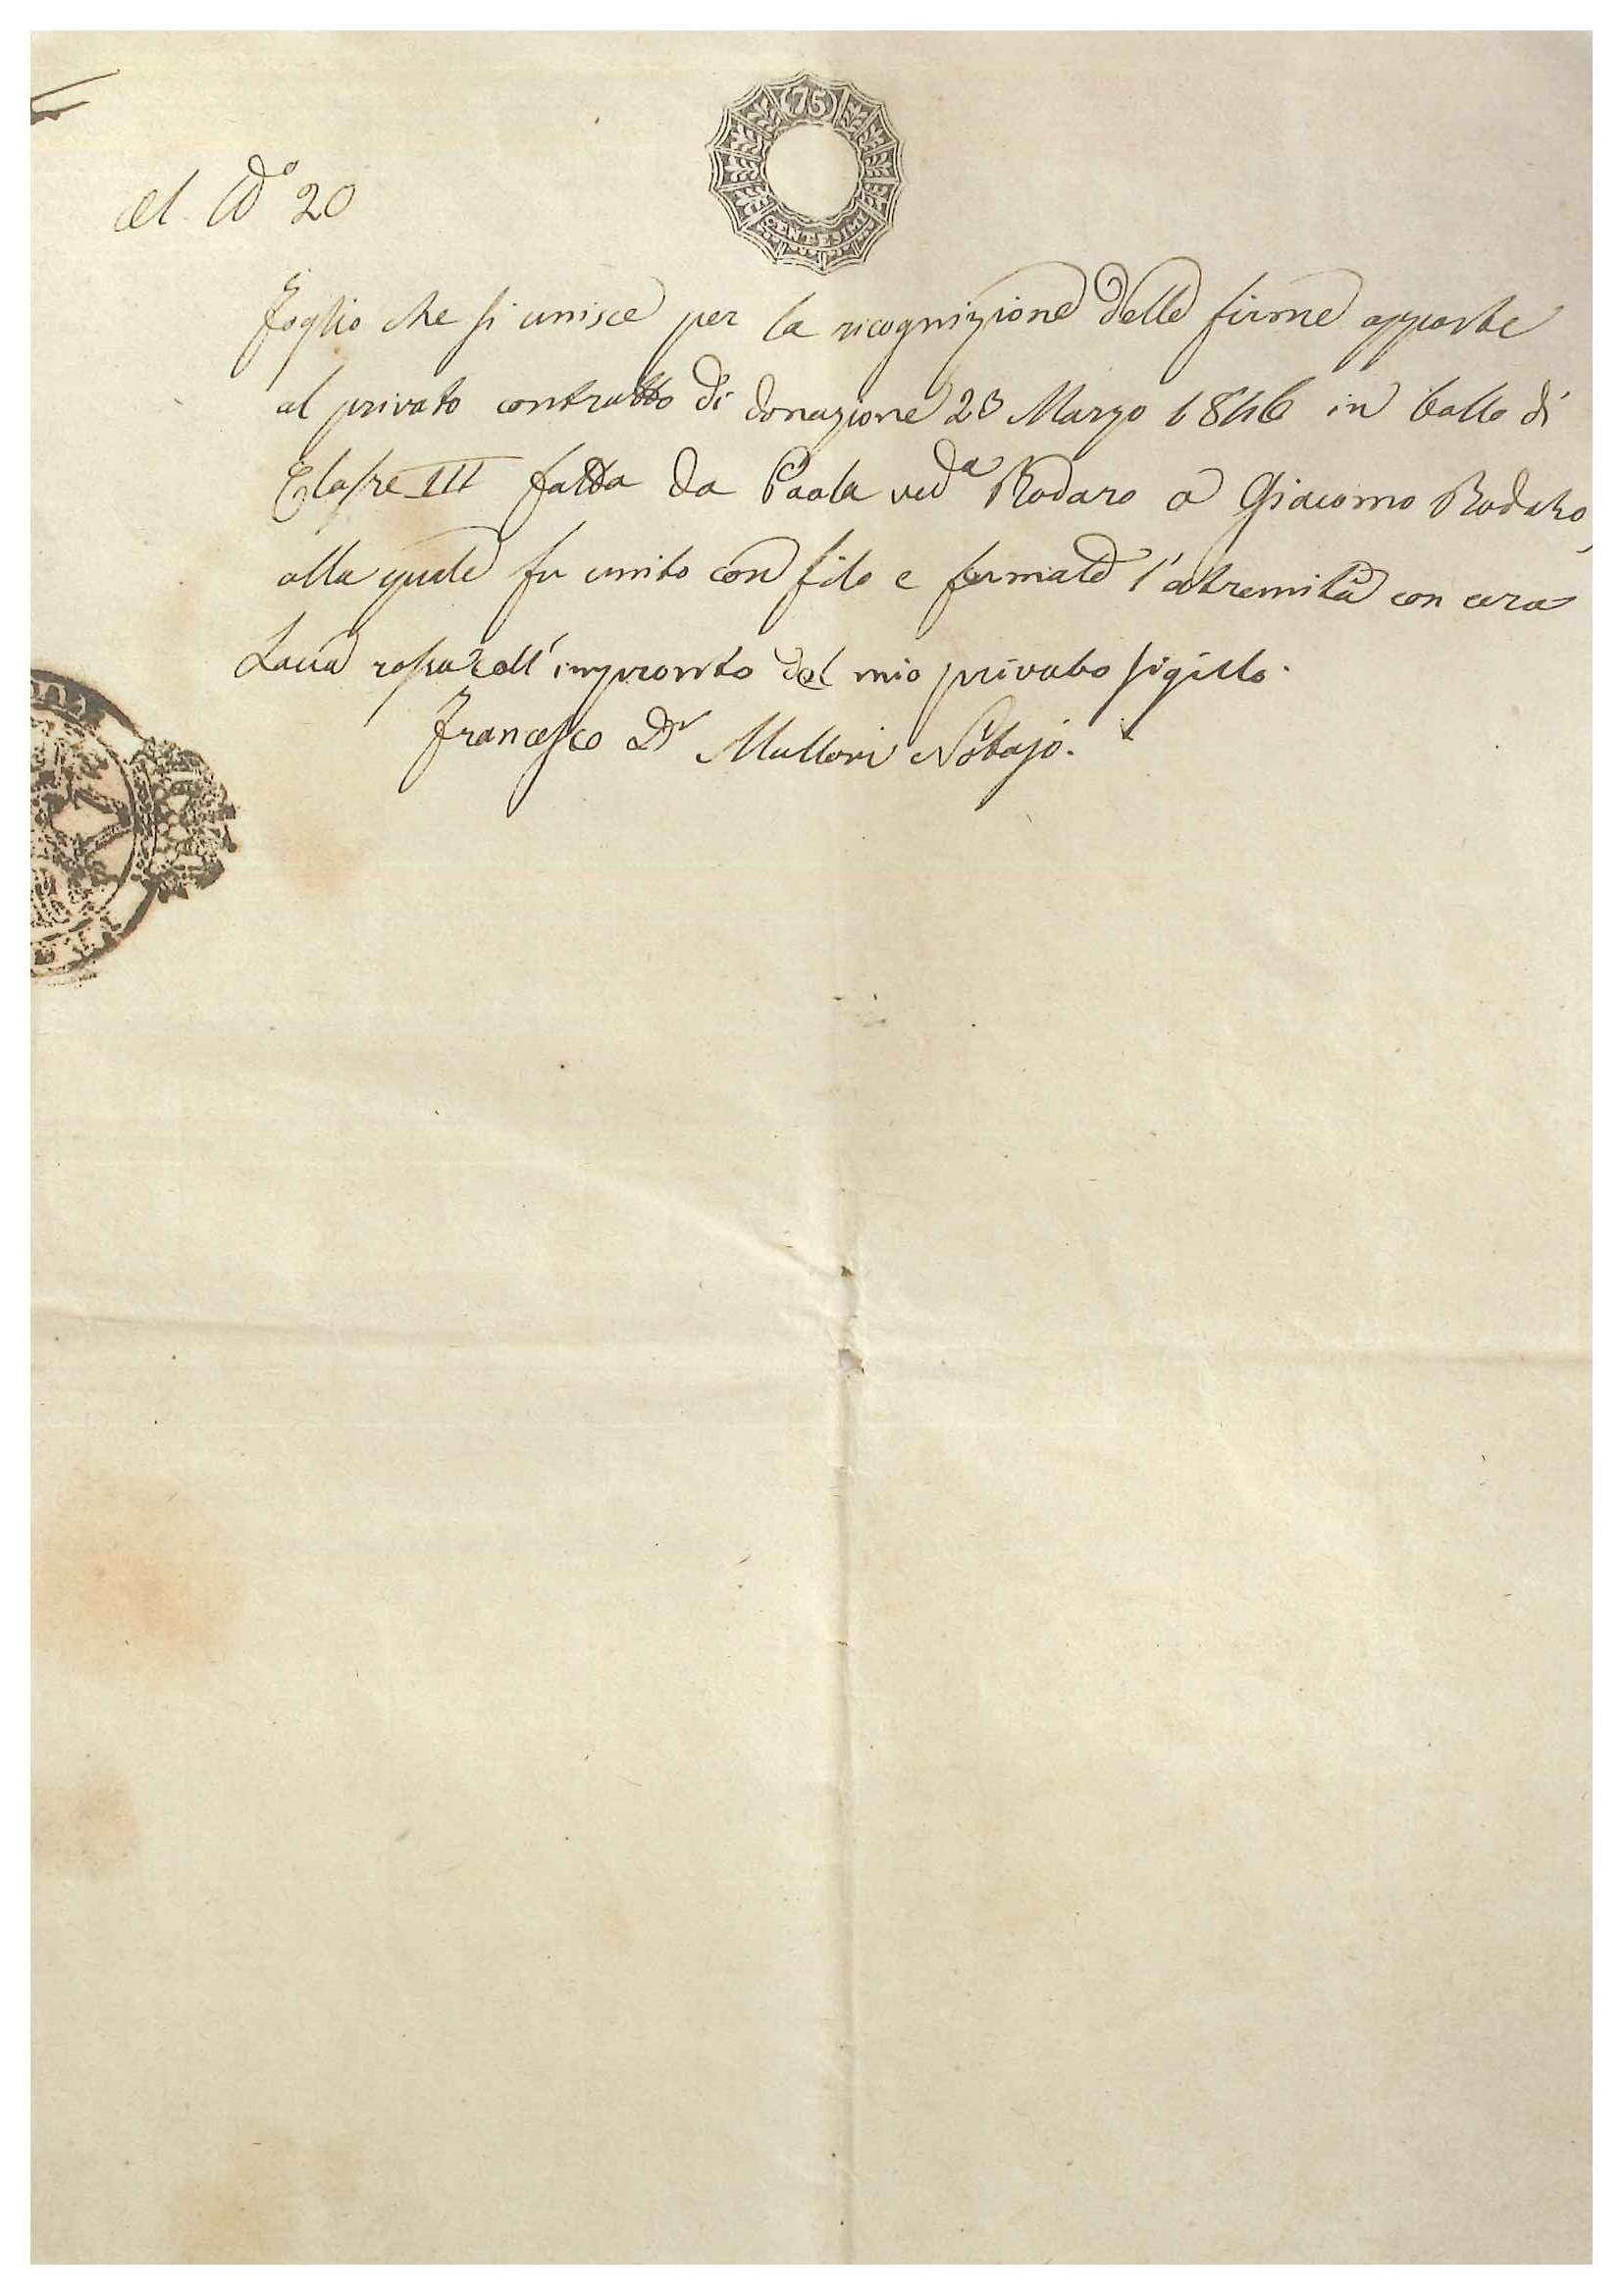 75
CENTESIMI
al N.o 20
Foglio che si unisce per la ricognizione delle firme apposte
al privato contratto di donazione 23 Marzo 1846 in bollo di
Classe III fatta da Paola ved.a Rodaro a Giacomo Rodaro,
alla quale fu unito con filo e fermate l'estremità con cera
Lacca rossa coll'impronto del mio privato sigillo.
Francesco Dr Notajo.